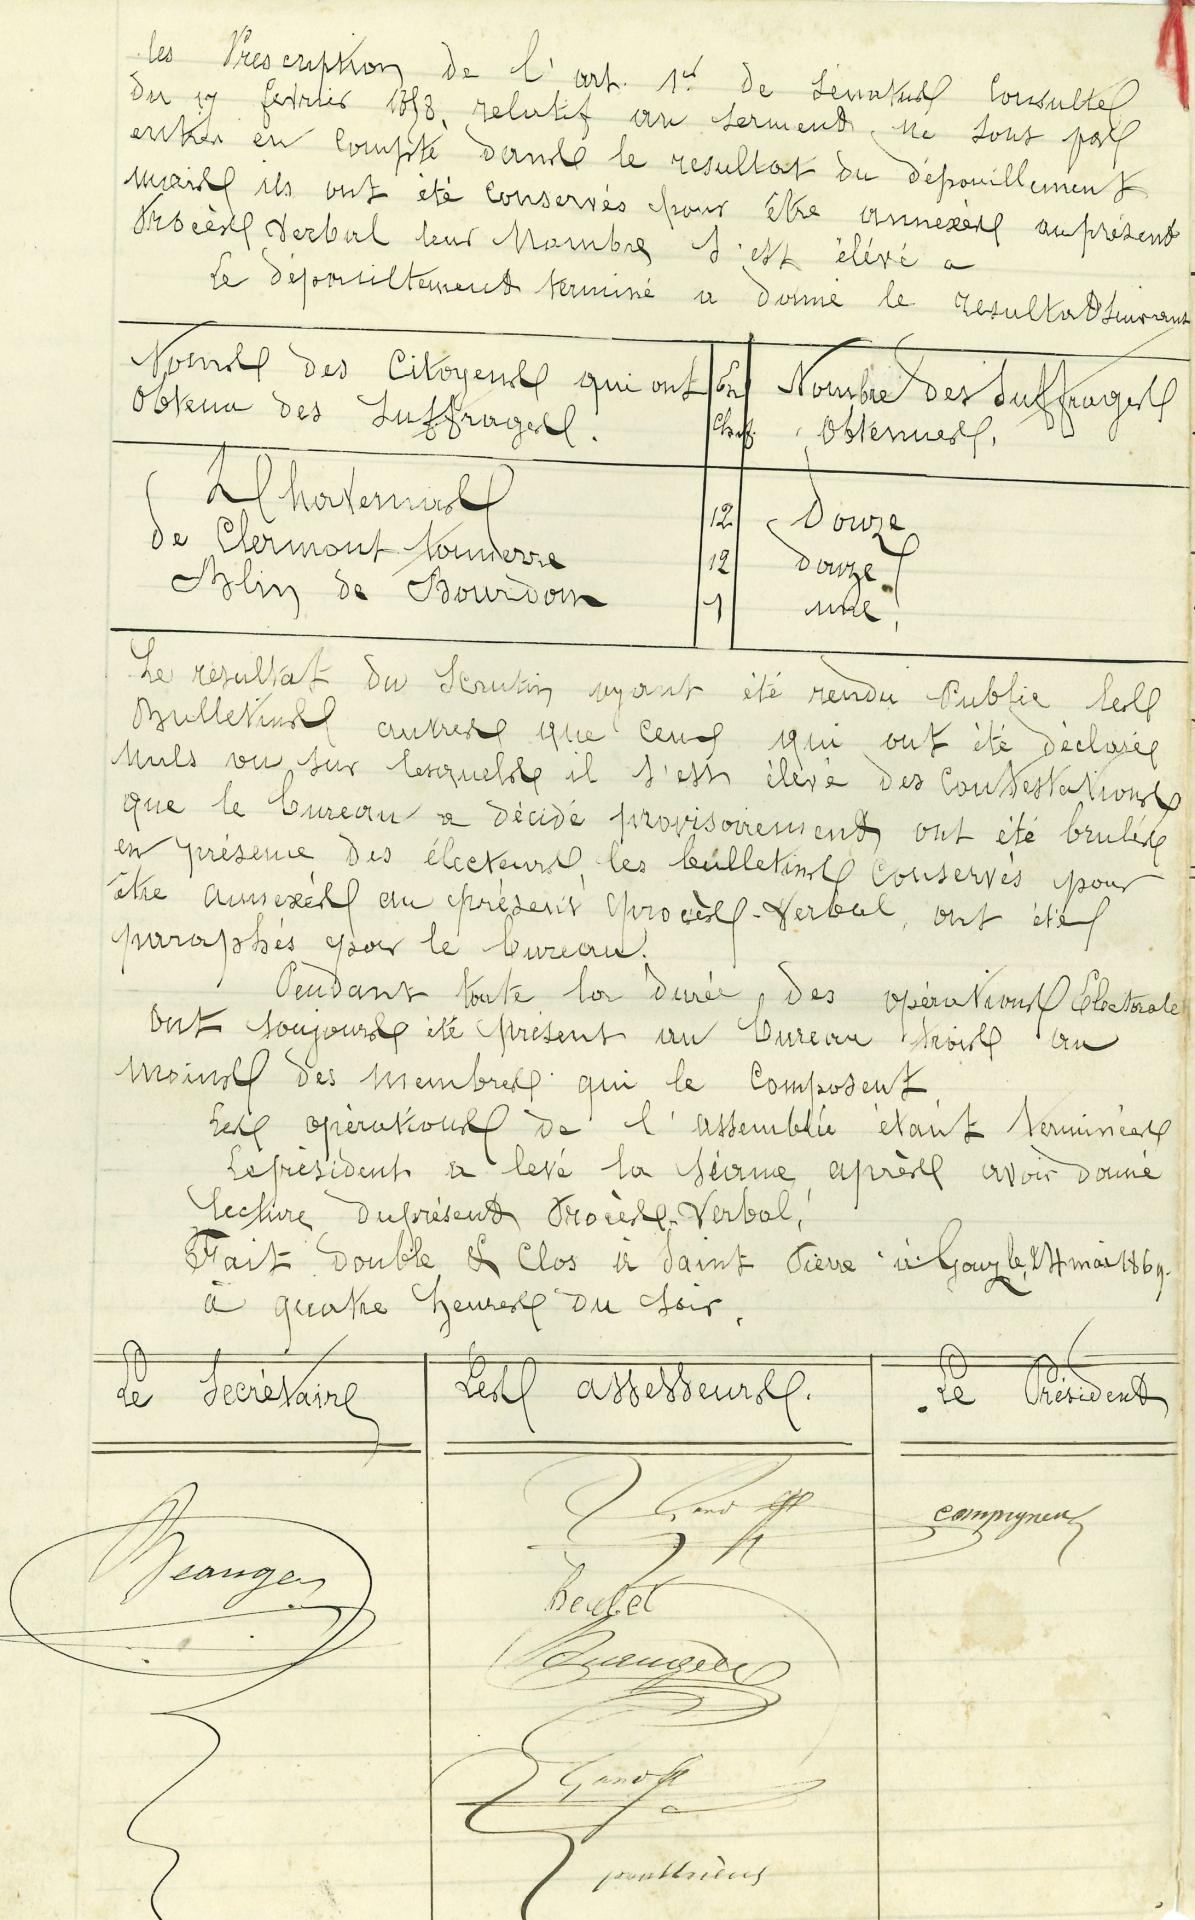 les Prescription de l'art. 1er de Sénatus Consulte
du 17 fevrier 1858, relatif au serment, ne sont pas
entrés en Compte dans le resultat du dépouillement
mais ils ont été Conservés pour être annexés au présent
Procès Verbal leur Nombre s'est élévé a
Le dépouillement terminé a donné le resultat Suivant
Noms des Citoyens qui ont obtenu des Suffrages. En Chif. Nombre des Suffrages obtenues.
Lhotermans 12 Douze
de Clermont tonnerre 12 douze
Blin de Bourdon 1 une
Le resultat du Scrutin ayant été rendu Public les
Bulletins autres que ceux qui ont été déclarés
nuls ou sur lesquels il s'est élevé des Contestations
que le bureau a décidé provisoirement, ont été brulés
en présence des électeurs, les bulletins Conservés pour
être annexés au présent procès-Verbal, ont été
paraphés par le bureau.
Pendant toute la durée des opérations Electorale
ont toujours été présent au bureau trois au
moins des membres qui le Composent
Les opérations de l'assemblée étant terminées
Le président a levé la séance après avoir donné
lecture du présent Procès-Verbal,
Fait double & Clos à Saint Pierre à Gouy le, 24 mai 1869.
à quatre heures du soir.
Le Secrétaire Les assesseurs. Le Président
Beauger compigneux
herbet
Beauger